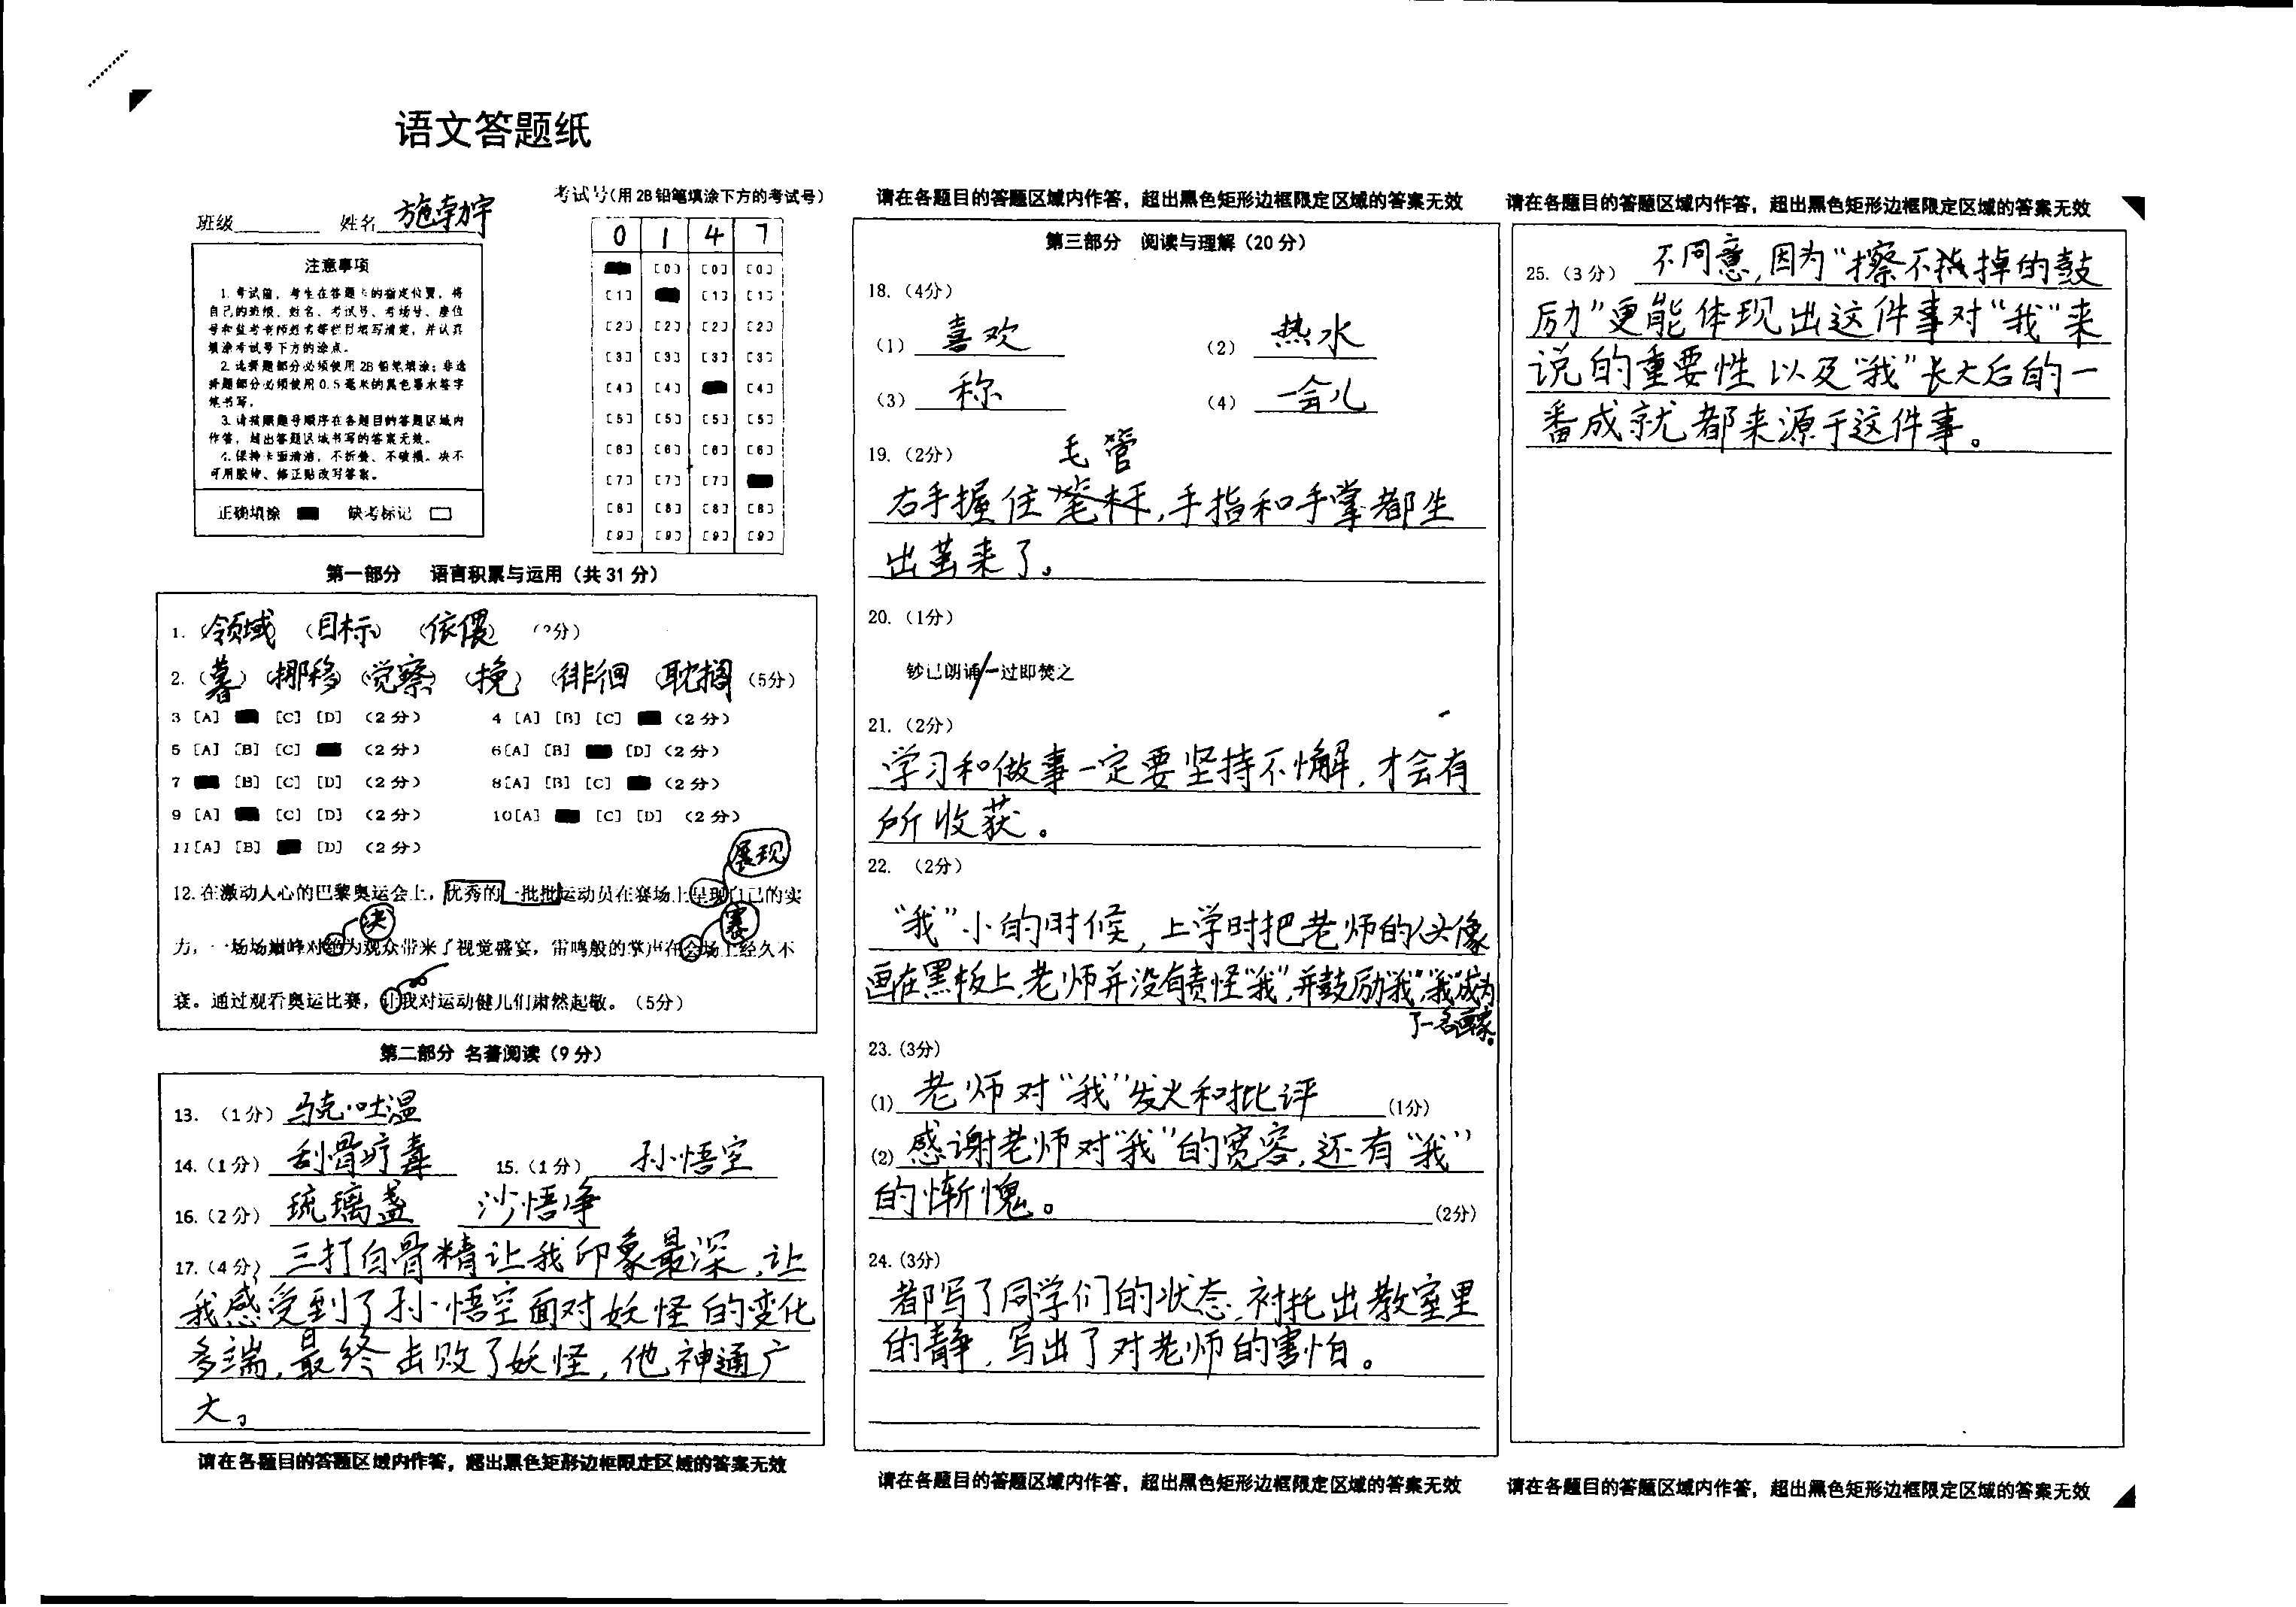 语文答题纸
班级 姓名
考试号(用2B铅笔填涂下方的考试号)
0 1 4 7
注意事项
1.考试前,考生在答题卡的指定位置,将
自己的班级、姓名、考试号、考场号、座位
号和监考老师姓名等栏目填写清楚,并认真
填涂考试号下方的涂点。
2.选择题部分必须使用2B铅笔填涂;非选
择题部分必须使用0.5毫米的黑色墨水签字
笔书写。
3.请按照题号顺序在各题目的答题区域内
作答,超出答题区域书写的答案无效。
4.保持卡面清洁,不折叠、不破损。决不
可用胶带、修正贴改写答案。
正确填涂 缺考标记
[0] [0] [0]
[1] [1] [1]
[2] [2] [2] [2]
[3] [3] [3] [3]
[4] [4] [4]
[5] [5] [5] [5]
[6] [6] [6] [6]
[7] [7] [7]
[8] [8] [8] [8]
[9] [9] [9] [9]
第一部分 语言积累与运用(共31分)
1.(领域)(目标)(依偎)
2.(暮)(挪移)(觉察)(挽)(徘徊)(耽搁)(5分)
3 [A] [C] [D] (2分) 4 [A] [B] [C] (2分)
5 [A] [B] [C] (2分) 6[A] [B] [D] (2分)
7 [B] [C] [D] (2分) 8[A] [B] [C] (2分)
9 [A] [C] [D] (2分) 10[A] [C] [D] (2分)
11[A] [B] [D] (2分)
展现
12.在激动人心的巴黎奥运会上,优秀的一批批运动员在赛场上呈现自己的实
决 赛
力,一场场巅峰对绝为观众带来了视觉盛宴,雷鸣般的掌声在会场上经久不
衰。通过观看奥运比赛,让我对运动健儿们肃然起敬。(5分)
第二部分 名著阅读(9分)
13.(1分)马克·吐温
14.(1分)刮骨疗毒 15.(1分)孙悟空
16.(2分)琉璃盏 沙悟净
17.(4分)三打白骨精让我印象最深,让
我感受到了孙悟空面对妖怪的变化
多端,最终击败了妖怪,他神通广
大。
请在各题目的答题区域内作答,超出黑色矩形边框限定区域的答案无效
请在各题目的答题区域内作答,超出黑色矩形边框限定区域的答案无效
第三部分 阅读与理解(20分)
18.(4分)
(1)喜欢 (2)热水
(3)称 (4)一会儿
19.(2分) 毛管
右手握住,手指和手掌都生
出茧来了。
20.(1分)
钞已朗诵/一过即焚之
21.(2分)
学习和做事一定要坚持不懈,才会有
所收获。
22.(2分)
“我”小的时候,上学时把老师的头像
画在黑板上,老师并没有责怪“我”,并鼓励“我”,“我”成为
了一名画家。
23.(3分)
(1)老师对“我”发火和批评 (1分)
(2)感谢老师对“我”的宽容,还有“我”
的惭愧。 (2分)
24.(3分)
都写了同学们的状态,衬托出教室里
的静,写出了对老师的害怕。
请在各题目的答题区域内作答,超出黑色矩形边框限定区域的答案无效
请在各题目的答题区域内作答,超出黑色矩形边框限定区域的答案无效
25.(3分)不同意,因为“擦不掉的鼓
励”更能体现出这件事对“我”来
说的重要性以及“我”长大后的一
番成就都来源于这件事。
请在各题目的答题区域内作答,超出黑色矩形边框限定区域的答案无效